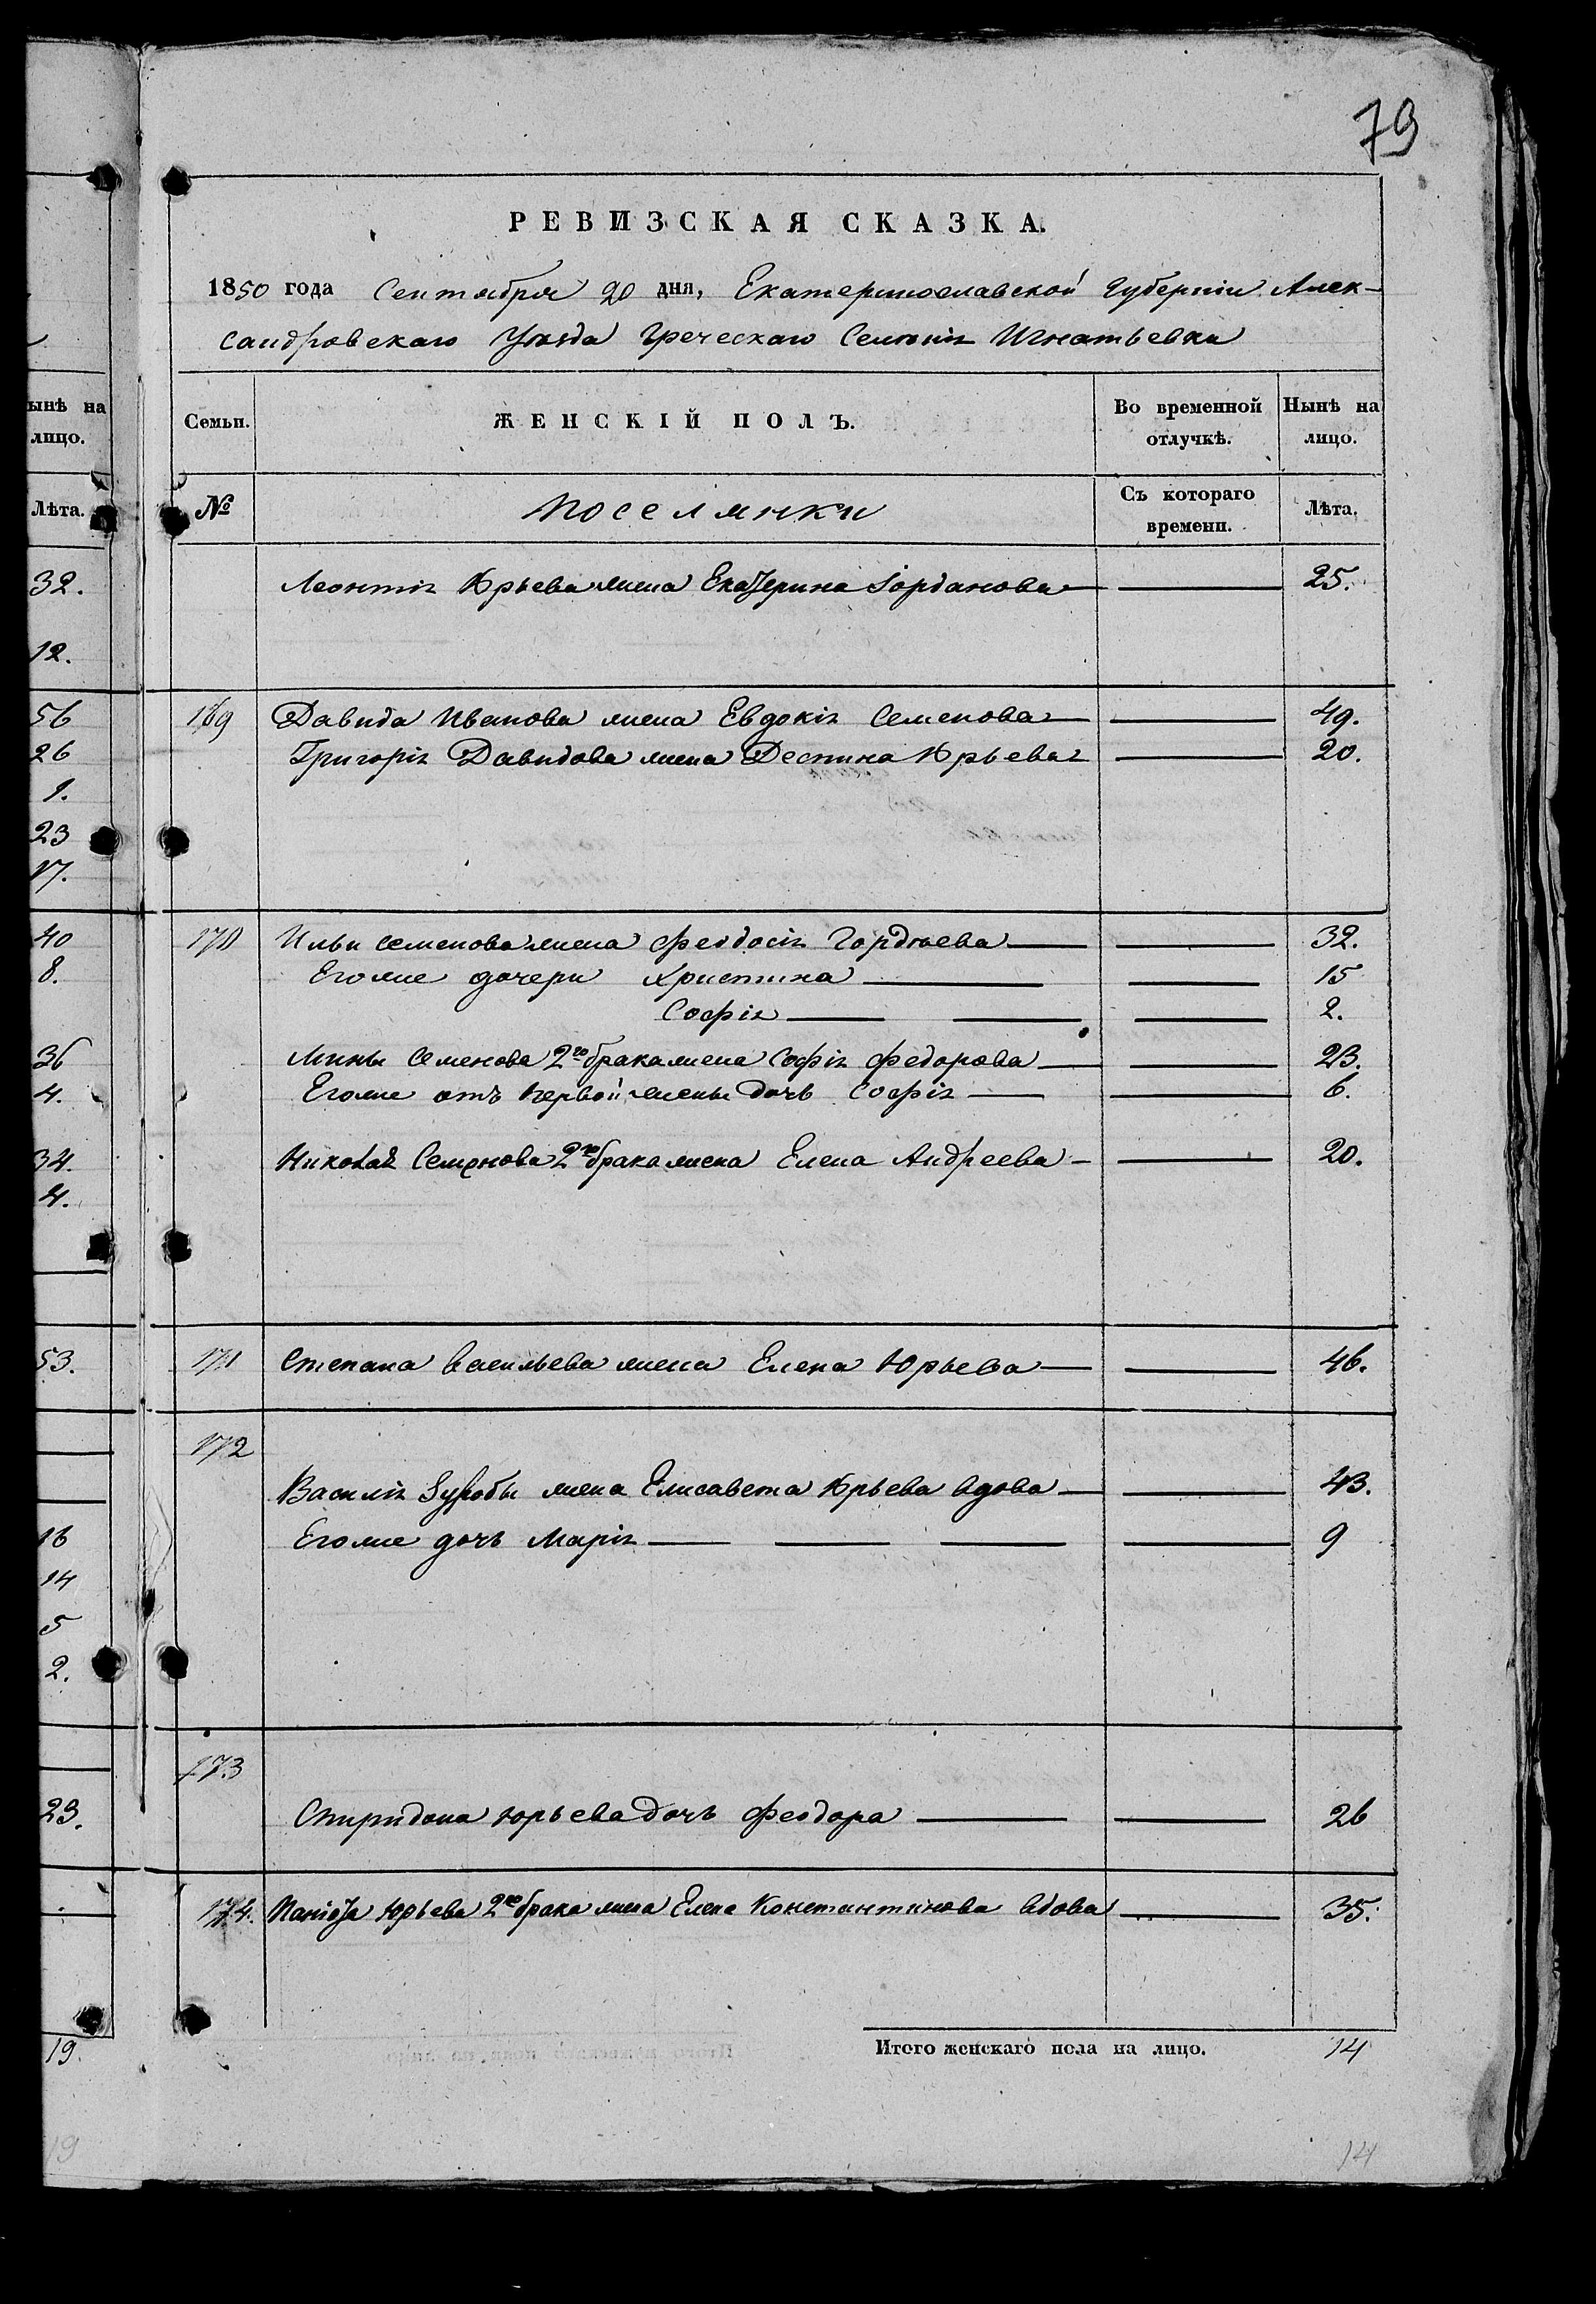 79
РЕВИЗСКАЯ СКАЗКА.
1850 года Сентября 20 дня, Екатеринославской Губерніи Алек-
сандровскаго Уѣзда Греческаго Селенія Игнатьевки
ынѣ на
лицо.
Лѣта.
32.
12.
56
26
1.
23
17.
40
8.
36
4.
34.
4.
53.
16
14
5
2.
23.
19.
19
Семьи. ЖЕНСКІЙ ПОЛЪ. Во временной отлучкѣ. Нынѣ на лицо.
№ Поселянки Съ котораго времени. Лѣта.
Леонтія Юрьева жена Екатерина Іорданова 25.
169 Давида Иванова жена Евдокія Семенова 49.
Григорія Давидова жена Деспина Юрьева 20.
170 Ильи Семенова жена Феодосія Гордѣева 32.
Его же дочери Христина 15
Софія 2.
Мины Семенова 2го брака жена Софія Федорова 23.
Его же отъ первой жены дочь Софія 6.
Николая Семенова 2го брака жена Елена Андреева 20.
171 Степана Васильева жена Елена Юрьева 46.
172
Василія жена Елисавета Юрьева вдова 43.
Его же дочь Марія 9
173
Спиридона Юрьева дочь Феодора 26
174. Юрьева 2го брака жена Елена Константинова вдова 35.
Итого женскаго пола на лицо. 14
14